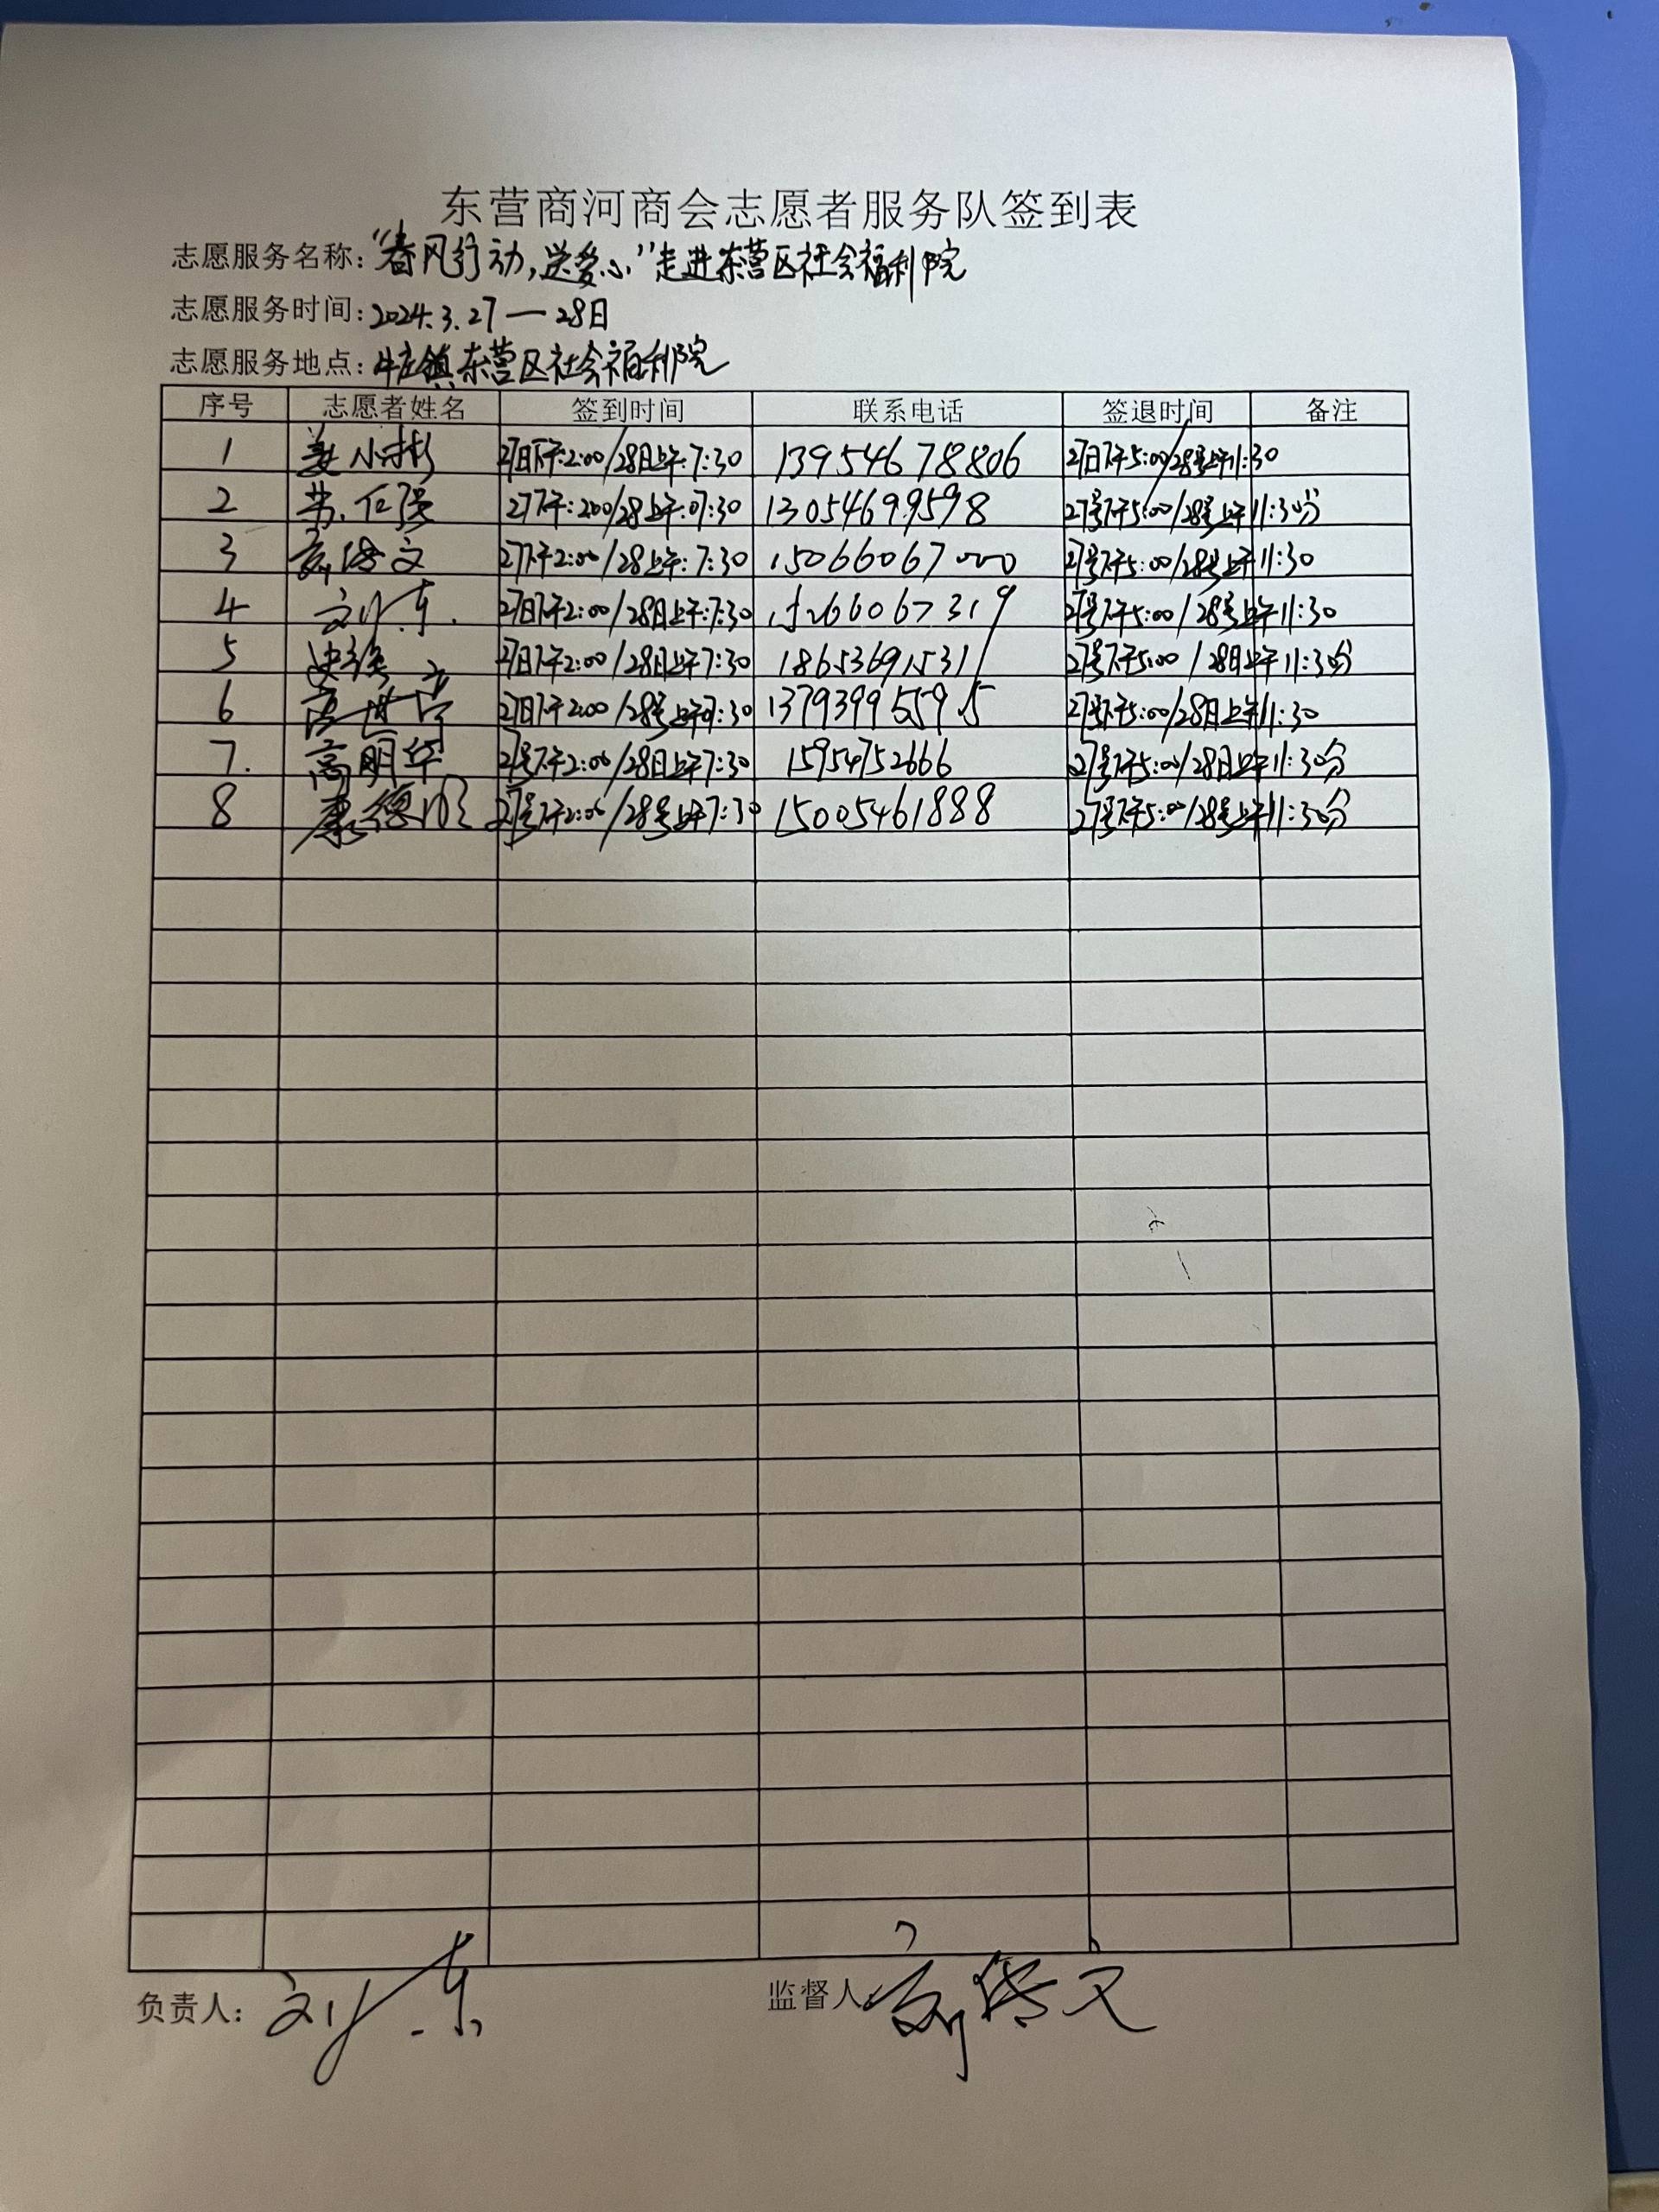 东营商河商会志愿者服务队签到表
志愿服务名称:“春风行动,送爱心”走进东营区社会福利院
志愿服务时间:2024.3.27—28日
志愿服务地点:牛庄镇东营区社会福利院
序号 志愿者姓名 签到时间 联系电话 签退时间 备注
1 姜小彬 27日下午:2:00/28日上午:7:30 13954678806 27日下午5:00/28号上午11:30
2 27下午:200/28上午:07:30 13054699598 27号下午5:00/28号上午11:30分
3 27下午2:00/28上午:7:30 15066067000 27号下午5:00/28号上午11:30
4 刘东 27日下午2:00/28日上午:7:30 27号下午5:00/28号上午11:30
5 27日下午2:00/28日上午7:30 18653691531 27号下午5:00/28日上午11:30分
6 27日下午2:00/28号上午7:30 13793995595 27号下午5:00/28日上午11:30
7. 高明华 27号下午2:00/28日上午7:30 15954752666 27号下午5:00/28日上午11:30分
8 康德顺 27号下午2:00/28号上午7:30 15005461888 27号下午5:00/28号上午11:30分
负责人:刘东 监督人: